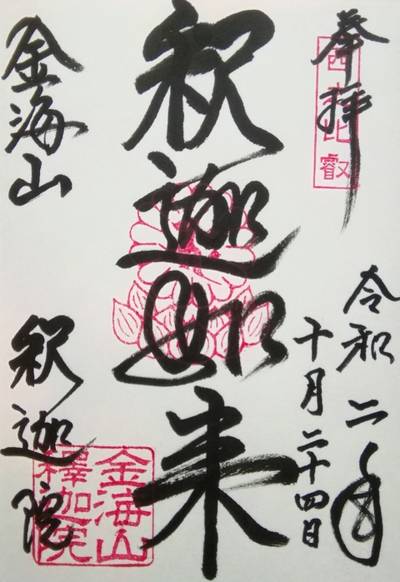 奉拝
西之比叡
令和二年
十月二十四日
釈迦如来
金海山
釈迦院
金海山
釋迦院